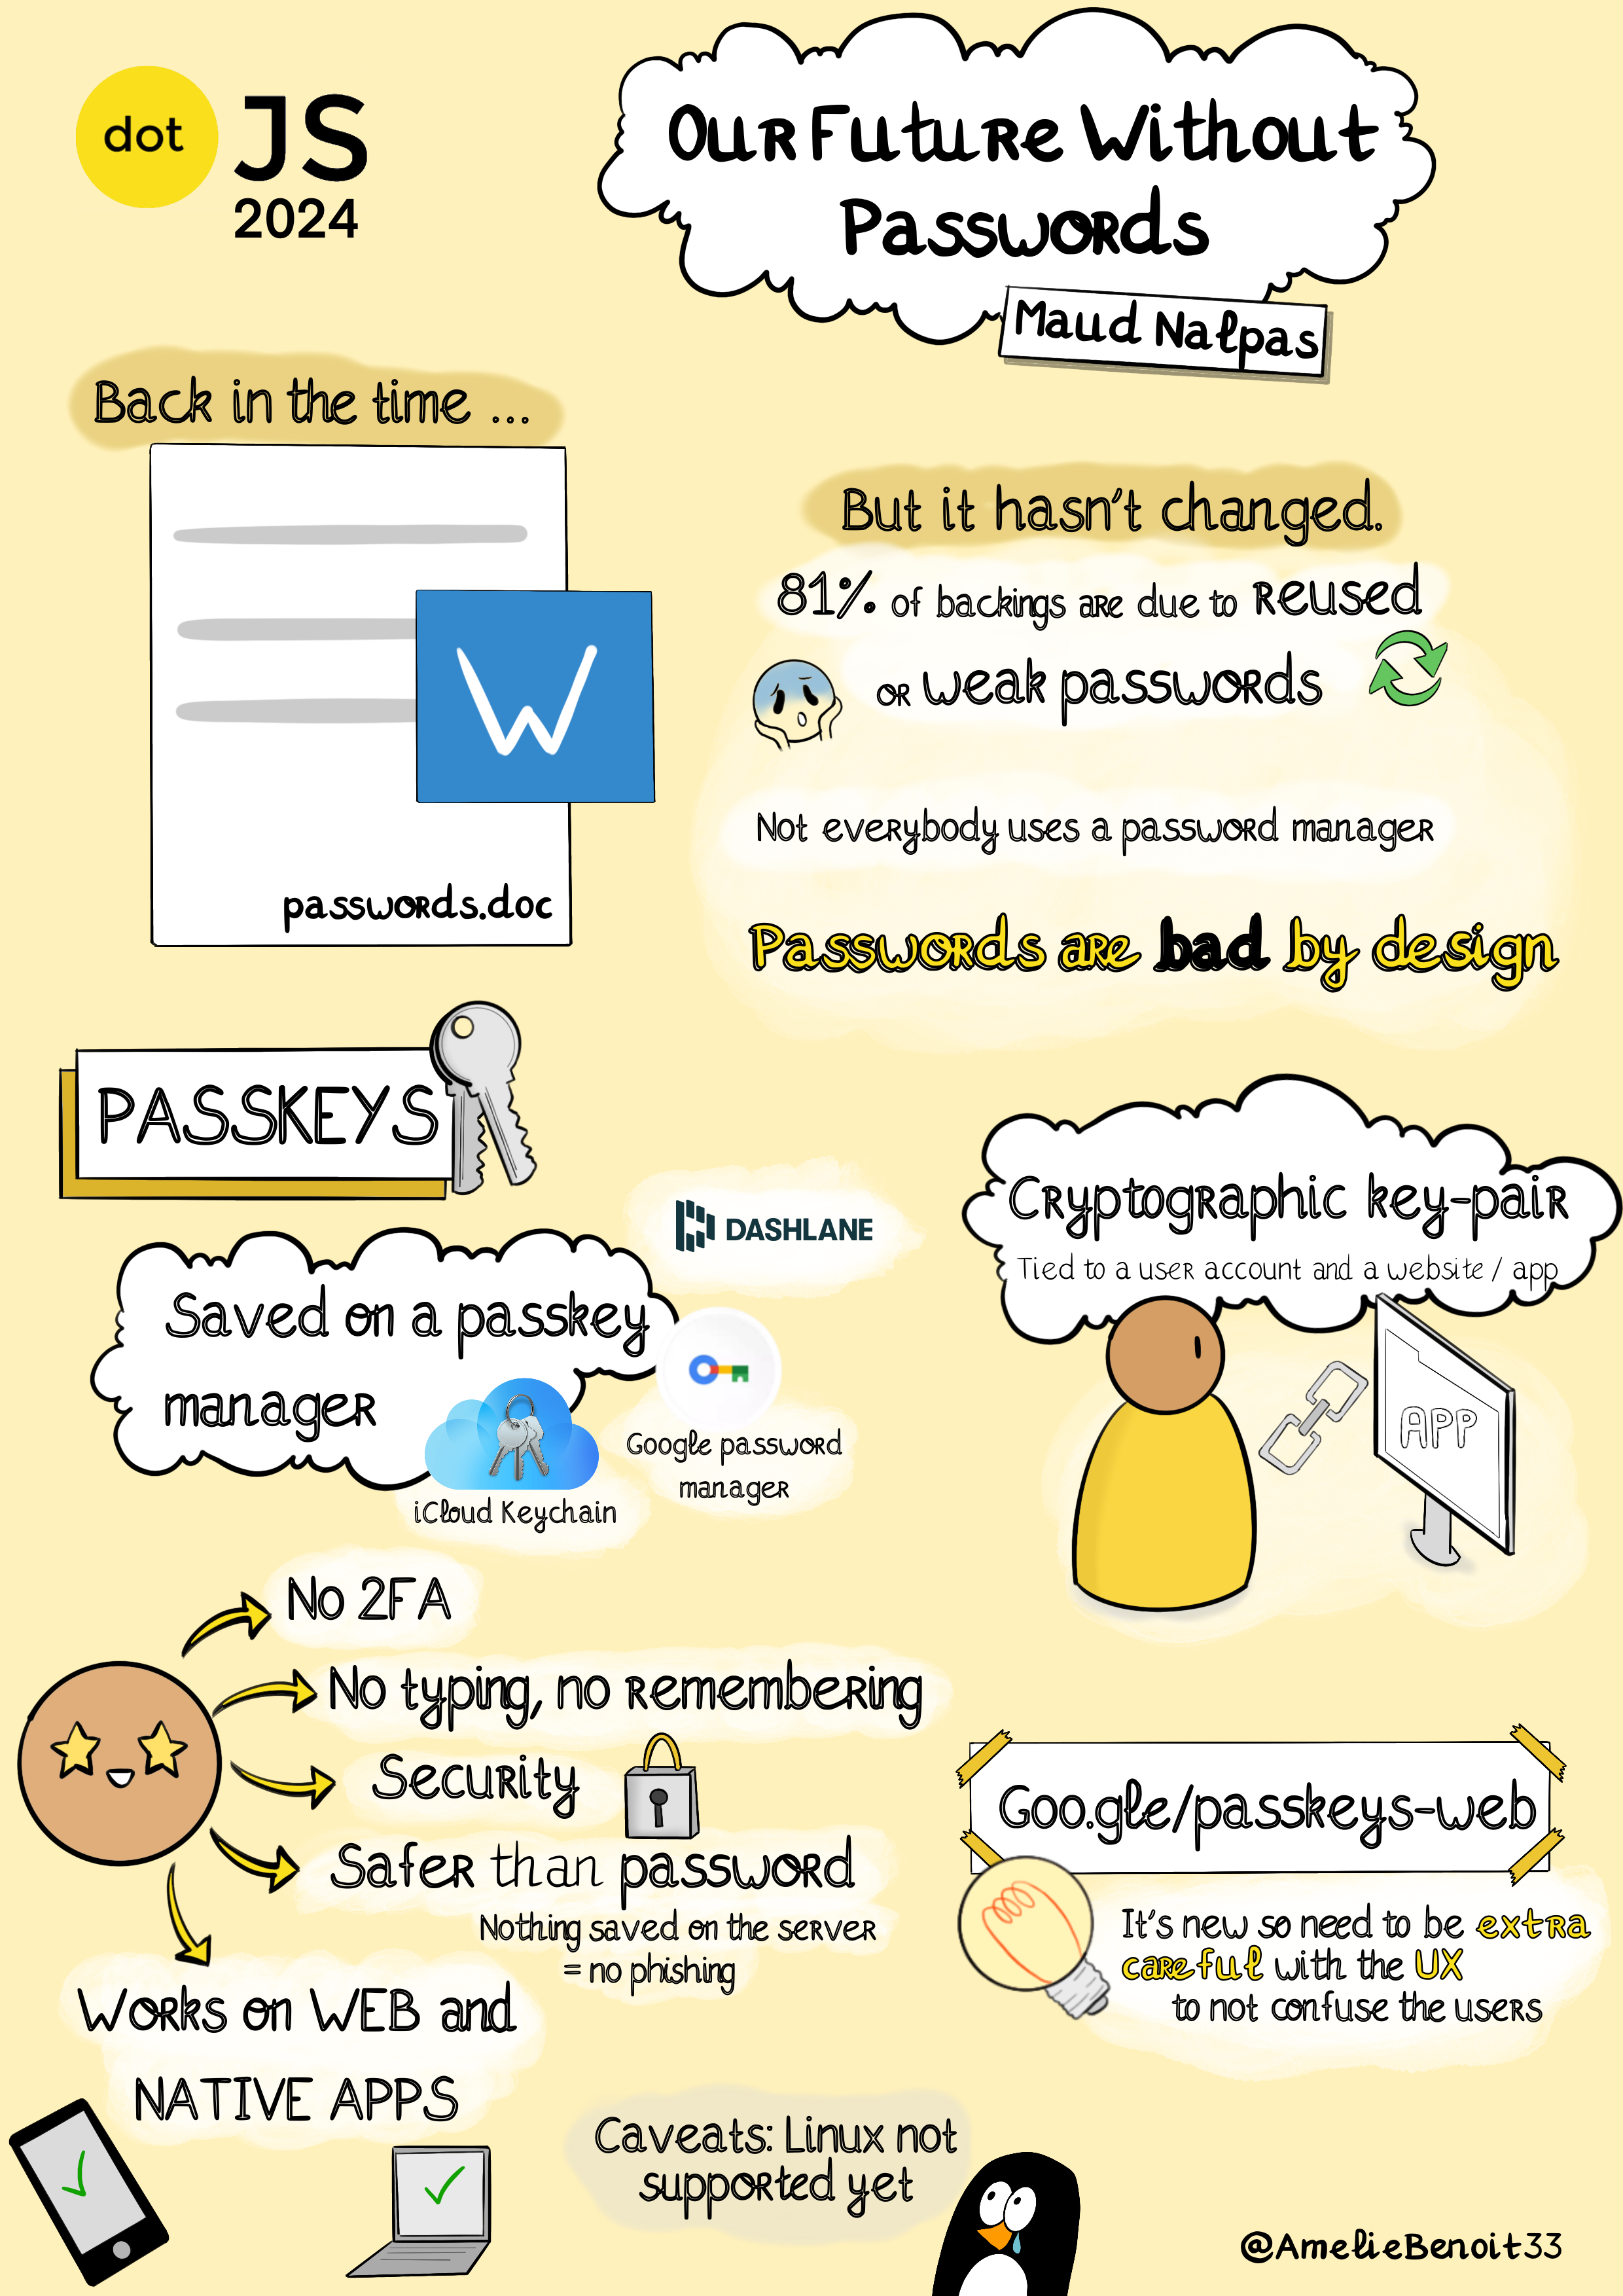 dot
JS
2024
Our Future Without
Passwords
Maud Nalpas
Back in the time ...
W
passwords.doc
But it hasn't changed.
81% of backings are due to reused
or weak passwords
Not everybody uses a password manager
Passwords are bad by design
PASSKEYS
Saved on a passkey
manager
DASHLANE
Google password
manager
iCloud Keychain
Cryptographic key-pair
Tied to a user account and a website / app
APP
No 2FA
No typing, no remembering
Security
Safer than password
Nothing saved on the server
= no phishing
Works on WEB and
NATIVE APPS
Goo.gle/passkeys-web
It's new so need to be extra
careful with the UX
to not confuse the users
Caveats: Linux not
supported yet
@AmelieBenoit33